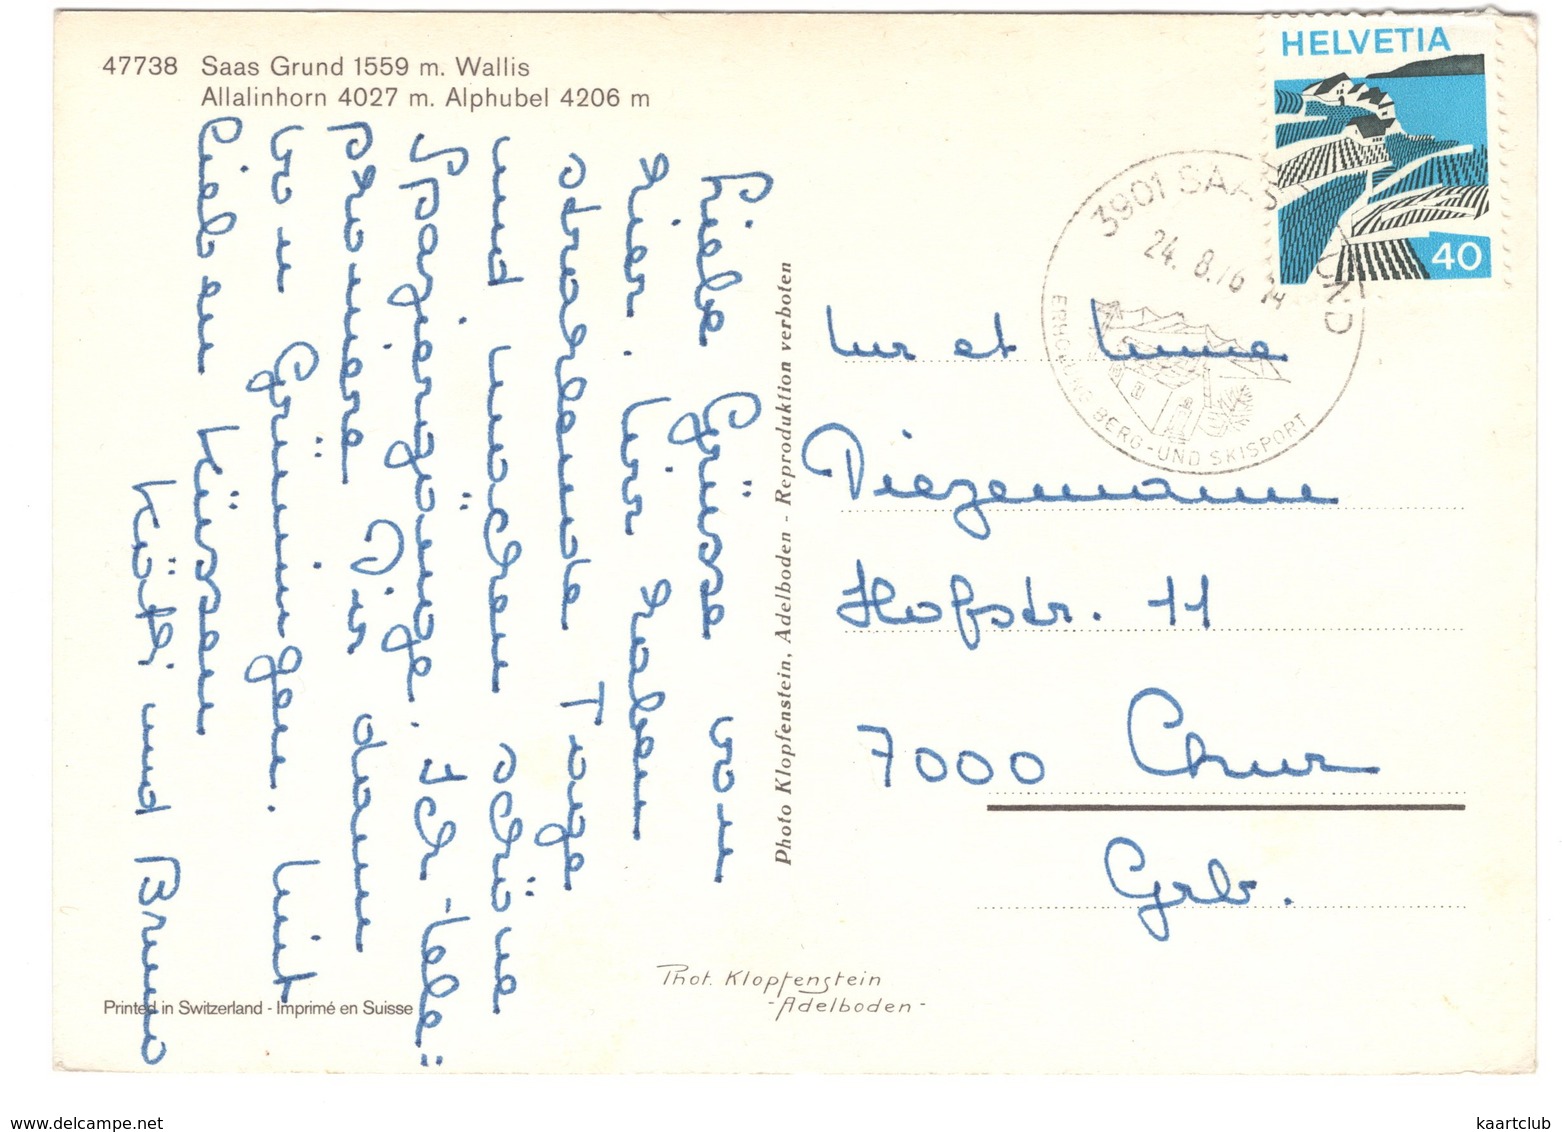 47738 Saas Grund 1559 m. Wallis
Allalinhorn 4027 m. Alphubel 4206 m
HELVETIA
40
3901 SAAS GRUND
24. 8. 76 14
ERHOLUNG BERG-UND SKISPORT
Liebe Grüsse von
hier. Wir haben
strahlende Tage
und machen schöne
Spaziergänge. Ich tele=
phoniere Dir dann
von Grüningen. Mit
lieben Küssen
Köthi und Bruno
Photo Klopfenstein, Adelboden - Reproduktion verboten
et
Diezemann
Hofstr. 11
7000 Chur
Grb.
Phot. Klopfenstein
- Adelboden -
Printed in Switzerland - Imprimé en Suisse
www.delcampe.net
kaartclub